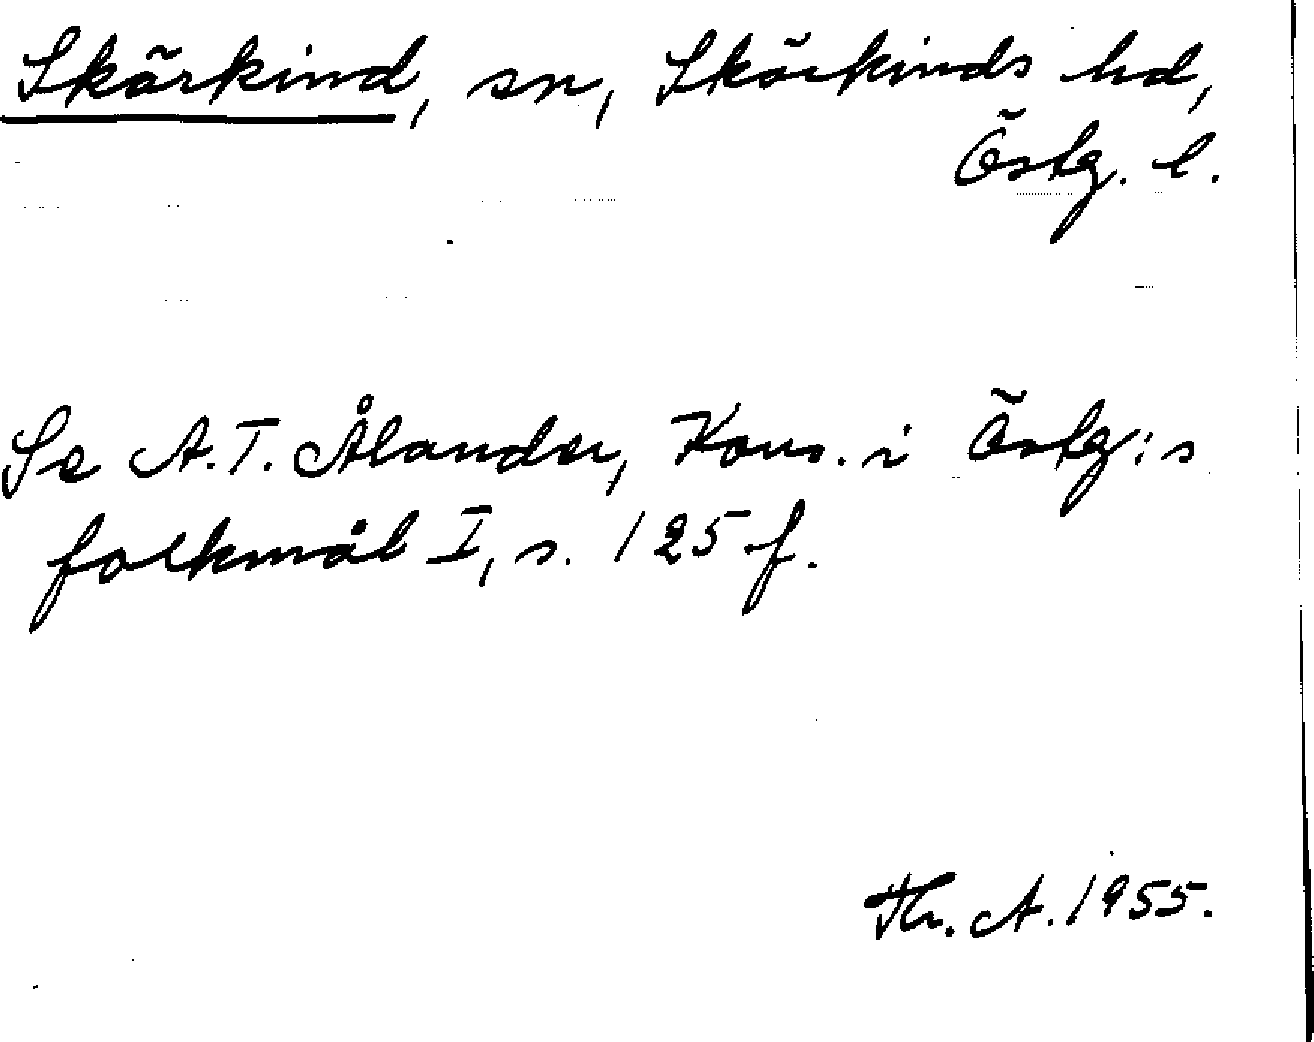 Skärkind, sn, Skärkinds hd,
Östg. l.
Se A. T. Ålander, Kons. i Östg:s
folkmål I, s. 125 f.
Th. A. 1955.